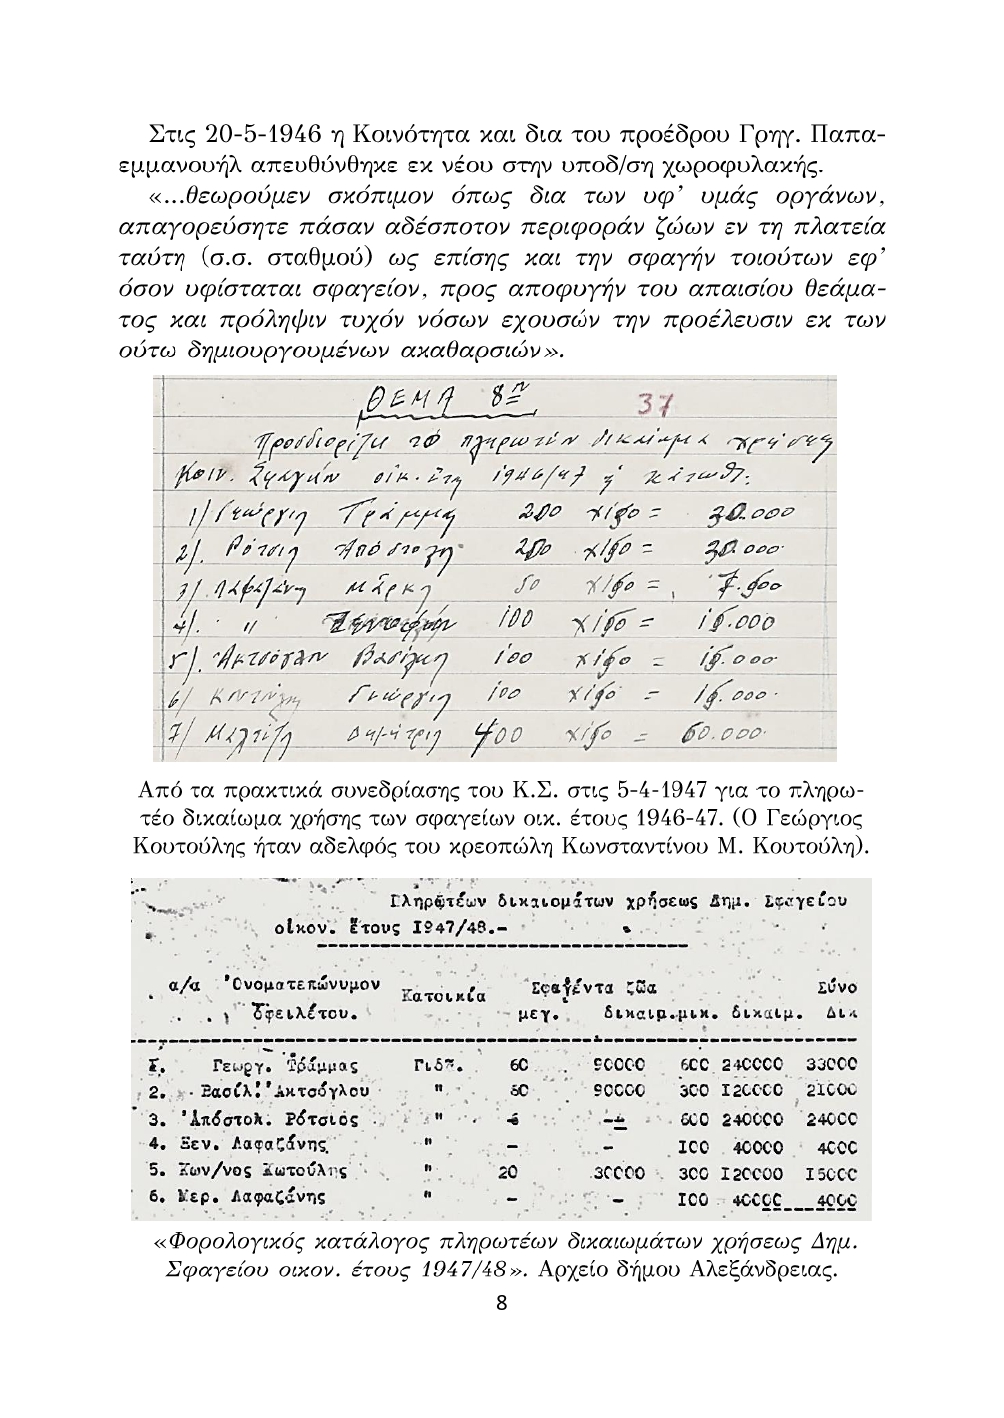 Στις 20-5-1946 η Κοινότητα και δια του προέδρου Γρηγ. Παπα-
εμμανουήλ απευθύνθηκε εκ νέου στην υποδ/ση χωροφυλακής.
«...θεωρούμεν σκόπιμον όπως δια των υφ’ υμάς οργάνων,
απαγορεύσητε πάσαν αδέσποτον περιφοράν ζώων εν τη πλατεία
ταύτη (σ.σ. σταθμού) ως επίσης και την σφαγήν τοιούτων εφ’
όσον υφίσταται σφαγείον, προς αποφυγήν του απαισίου θεάμα-
τος και πρόληψιν τυχόν νόσων εχουσών την προέλευσιν εκ των
ούτω δημιουργουμένων ακαθαρσιών».
ΘΕΜΑ 8ον 37
Προσδιορίζει το πληρωτέον δικαίωμα χρήσεως
Κοιν. Σφαγείων οικ. έτη 1946/47 κάτωθι:
1) Γεώργιη Τράμμα 200 χ150 = 30.000
2). Ρότσιη Απόστολη 200 χ150 = 30.000
3) Λαφαζάνη Μάρκη 50 χ150 = 7.500
4). " Ξενοφών 100 χ150 = 15.000
5). Ακτσόγλου Βασίλη 100 χ150 = 15.000
6) Κουτούλη Γεώργιη 100 χ150 = 15.000
7) Δημήτριη 400 χ150 = 60.000
Από τα πρακτικά συνεδρίασης του Κ.Σ. στις 5-4-1947 για το πληρω-
τέο δικαίωμα χρήσης των σφαγείων οικ. έτους 1946-47. (Ο Γεώργιος
Κουτούλης ήταν αδελφός του κρεοπώλη Κωνσταντίνου Μ. Κουτούλη).
Πληρωτέων δικαιομάτων χρήσεως Δημ. Σφαγείου
οίκον. έτους 1947/48.-
α/α Ὀνοματεπώνυμον Κατοικία Σφαγέντα ζῶα Σύνο
ὀφειλέτου. μεγ. δικαιμ.μικ. δικαιμ. Δικ
1. Γεωργ. Τράμμας Γιδᾶ. 60 90000 600 240000 33000
2. Βασίλ. Ἀκτσόγλου " 60 90000 300 120000 21000
3. Ἀπόστολ. Ρότσιος " - - 600 240000 24000
4. Ξεν. Λαφαζάνης " - - 100 40000 4000
5. Κων/νος Κωτούλης " 20 30000 300 120000 15000
6. Μερ. Λαφαζάνης " - - 100 40000 4000
«Φορολογικός κατάλογος πληρωτέων δικαιωμάτων χρήσεως Δημ.
Σφαγείου οικον. έτους 1947/48». Αρχείο δήμου Αλεξάνδρειας.
8